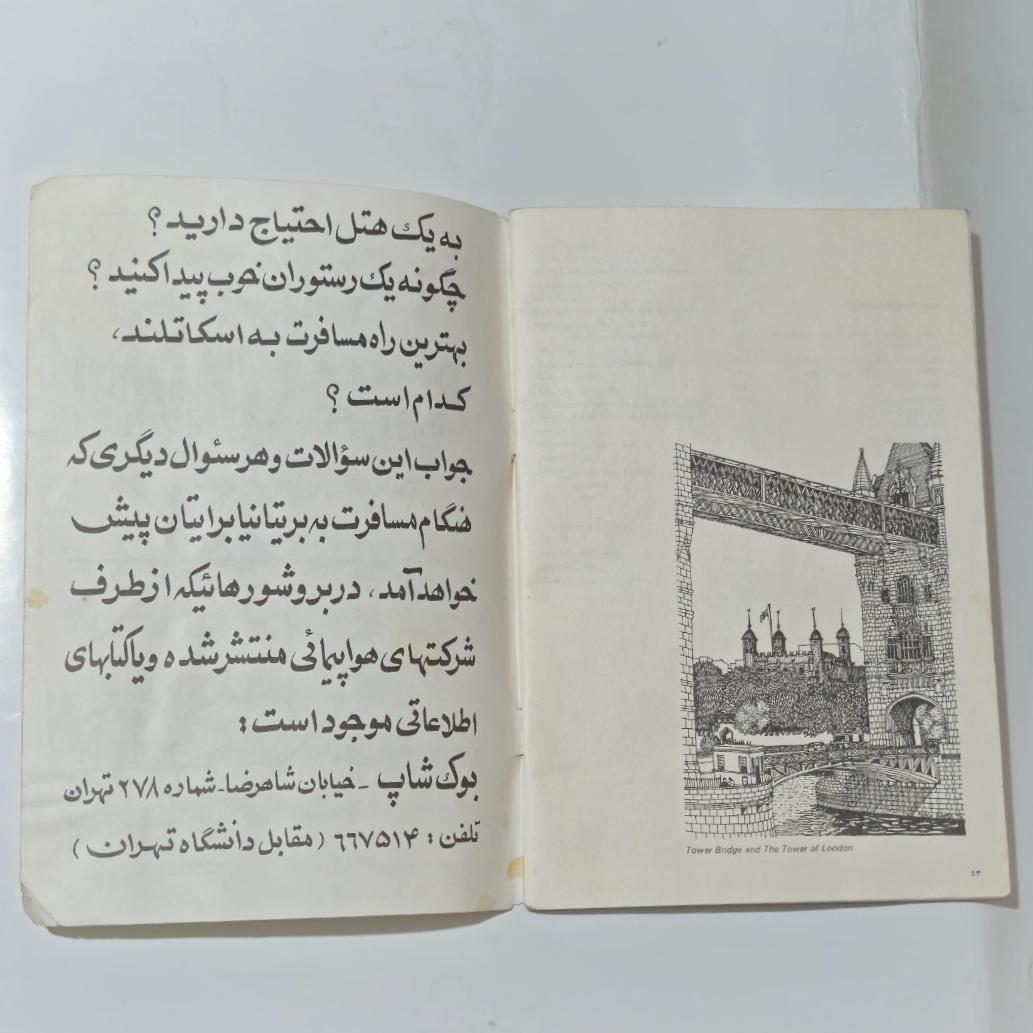 به یک هتل احتیاج دارید؟
چگونه یک رستوران خوب پیدا کنید؟
بهترین راه مسافرت به اسکاتلند،
کدام است؟
جواب این سؤالات و هر سئوال دیگری که
هنگام مسافرت به بریتانیا برایتان پیش
خواهد آمد، در بروشورهائیکه از طرف
شرکتهای هواپیمائی منتشر شده و یا کتابهای
اطلاعاتی موجود است:
بوک شاپ - خیابان شاهرضا - شماره ۲۷۸ تهران
تلفن: ۶۶۷۵۱۴ (مقابل دانشگاه تهران)
Tower Bridge and The Tower of London
٤٣